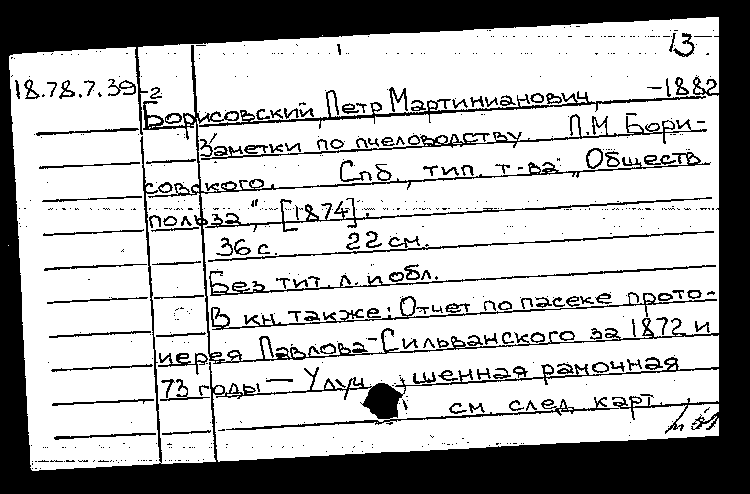 13.
18.78.7.39-2
Борисовский, Петр Мартинианович, -1882
Заметки по пчеловодству П.М. Бори-
совского. Спб., тип. т-ва "Обществ.
польза", [1874].
36 с. 22 см.
Без тит. л. и обл.
В кн. также: Отчет по пасеке прото-
иерея Павлова-Сильванского за 1872 и
73 годы — Улучшенная рамочная
см. след. карт.